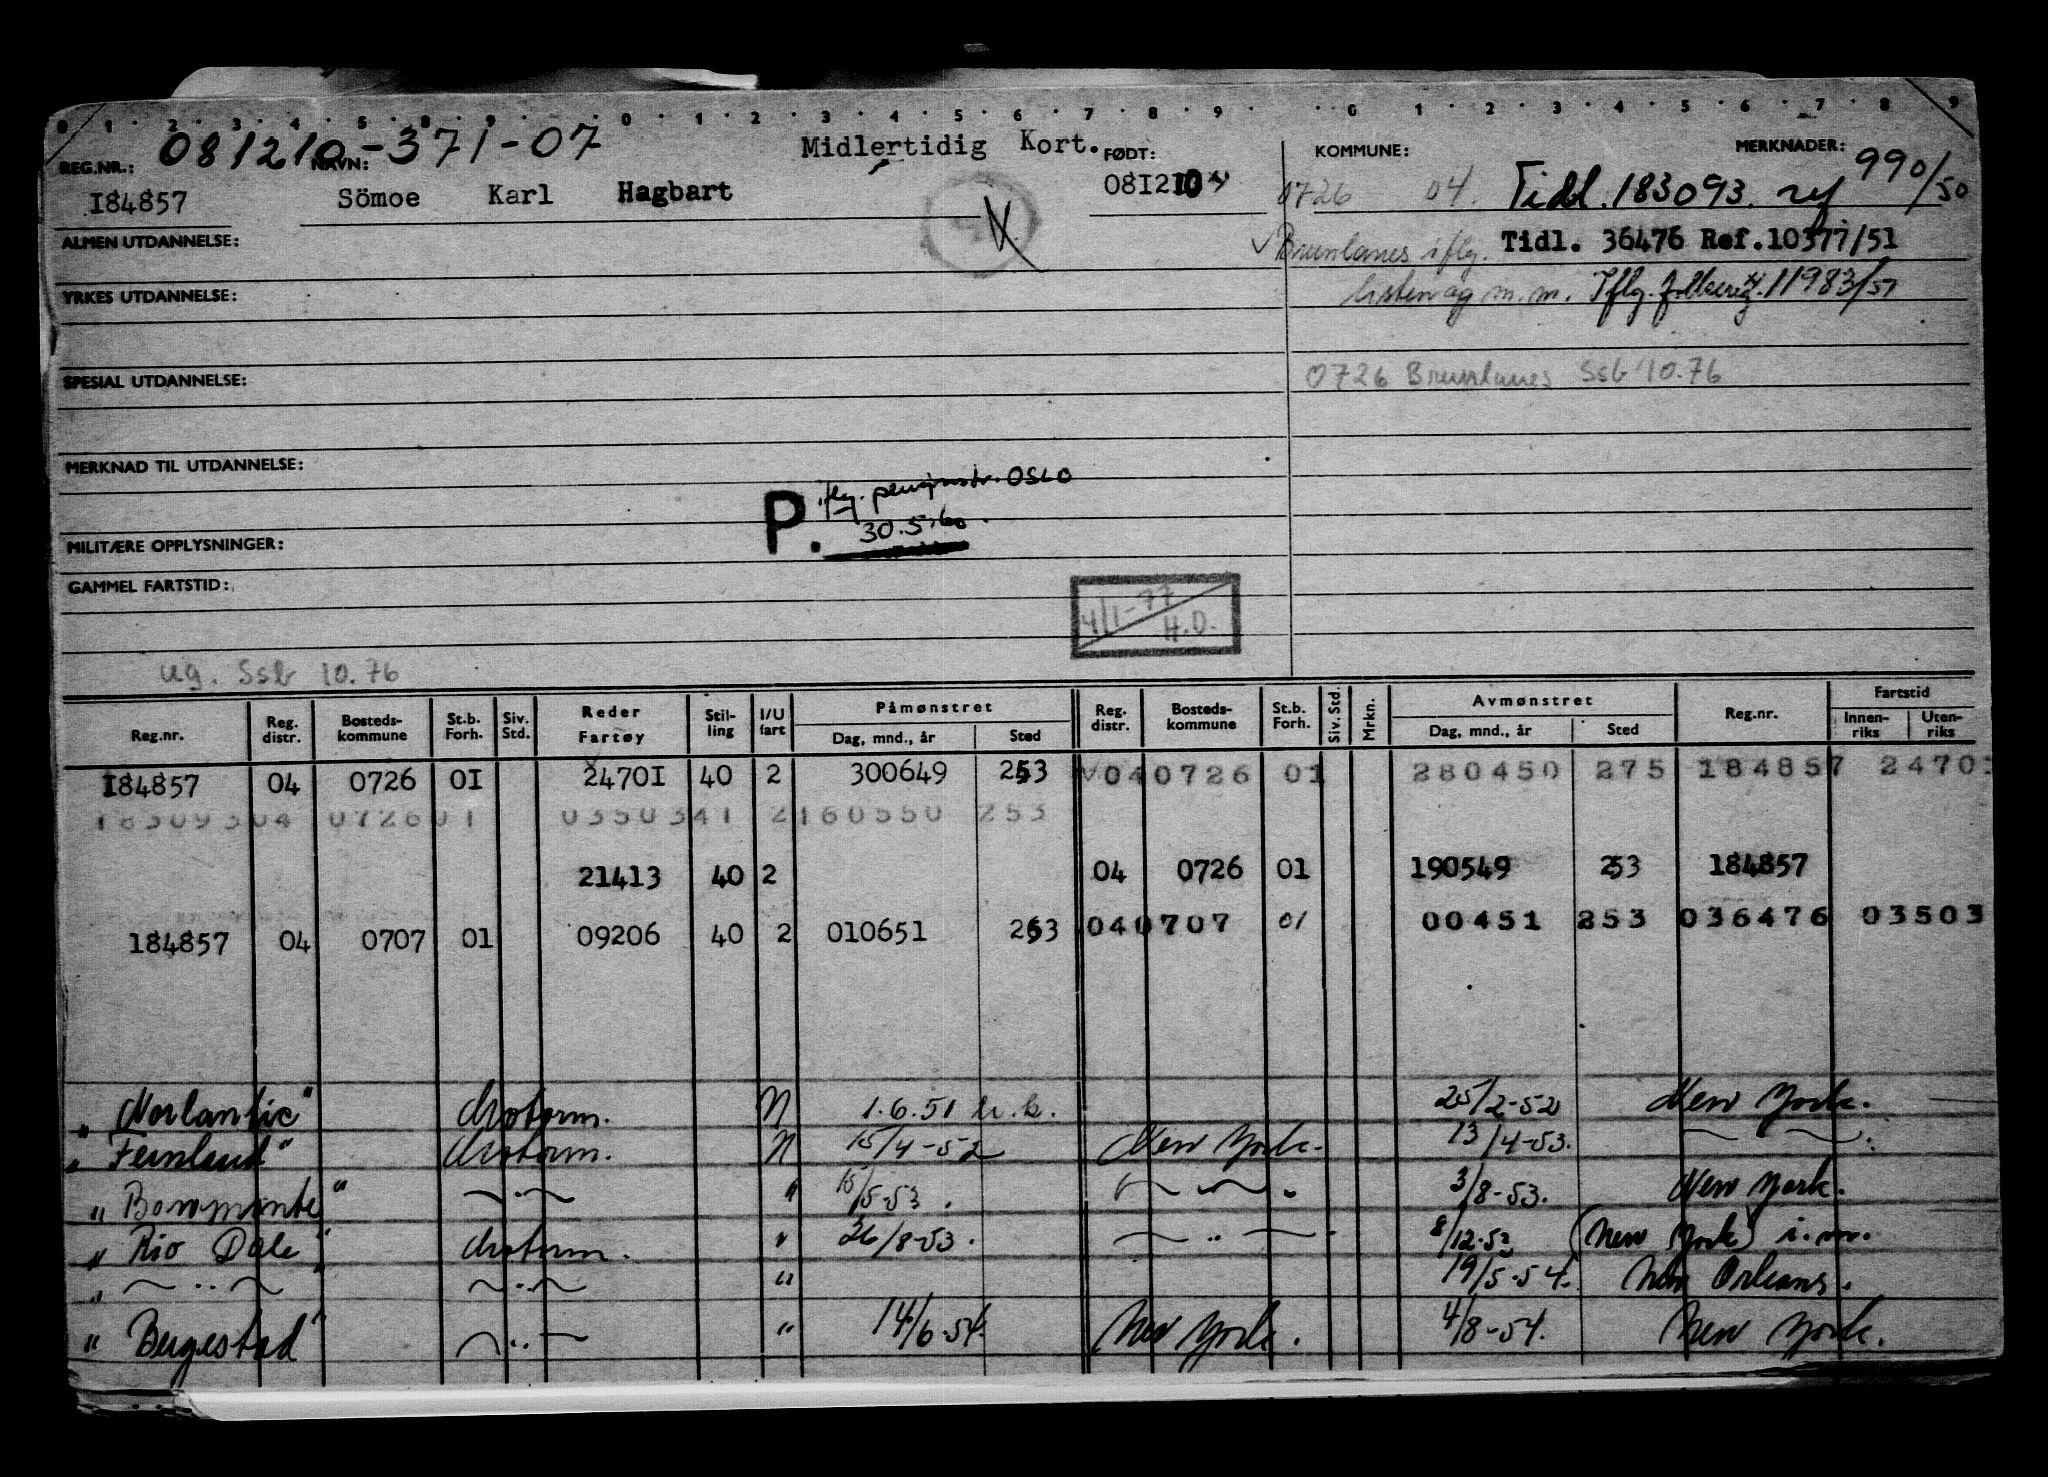 0 1 2 3 4 5 8 9 0 1 2 3 4 5 6 7 8 9 0 1 2 3 4 5 6 7 8 9
REG.NR.: 081210-371-07 NAVN: Midlertidig Kort. FØDT: KOMMUNE: MERKNADER:
I84857 Sömoe Karl Hagbart 08I210 0726 04. Tidl. 183093. ref 990/50
ALMEN UTDANNELSE: Brunlanes iflg. Tidl. 36476 Ref.10377/51
YRKES UTDANNELSE: listen og m.m. Iflg. folkereg. 11983/57
SPESIAL UTDANNELSE: 0726 Brunlanes Ssb 10.76
MERKNAD TIL UTDANNELSE:
P. iflg. pensjonstr. OSLO
30.5.60.
MILITÆRE OPPLYSNINGER:
GAMMEL FARTSTID:
4/1-77 H.D.
ug. Ssb 10.76
Reg.nr. Reg. distr. Bosteds-kommune St.b. Forh. Siv. Std. Reder Fartøy Stil-ling I/U fart Påmønstret Dag, mnd., år Sted Reg. distr. Bosteds-kommune St.b. Forh. Siv. Std. Mrkn. Avmønstret Dag, mnd., år Sted Reg.nr. Fartstid Innen-riks Uten-riks
I84857 04 0726 0I 2470I 40 2 300649 253 040726 01 280450 275 184857 24701
18309304 072601 0350341 2160550 253
21413 40 2 04 0726 01 190549 253 184857
184857 04 0707 01 09206 40 2 010651 263 040707 01 00451 253 036476 03503
"Norlantic" Motorm. N 1.6.51 25/2-52 New York.
"Fernland" Motorm. N 15/4-52 New York. 13/4-53. — " —
"Bowmonte" — " — " 15/5-53. — " — 3/8-53. New York.
"Rio Dale" Motorm. " 26/8-53. — " — 8/12-53 (New York) i.m.
" — " — — " — " 19/5-54. New Orleans.
"Bergestad" — " — " 14/6-54. New York. 4/8-54. New York.